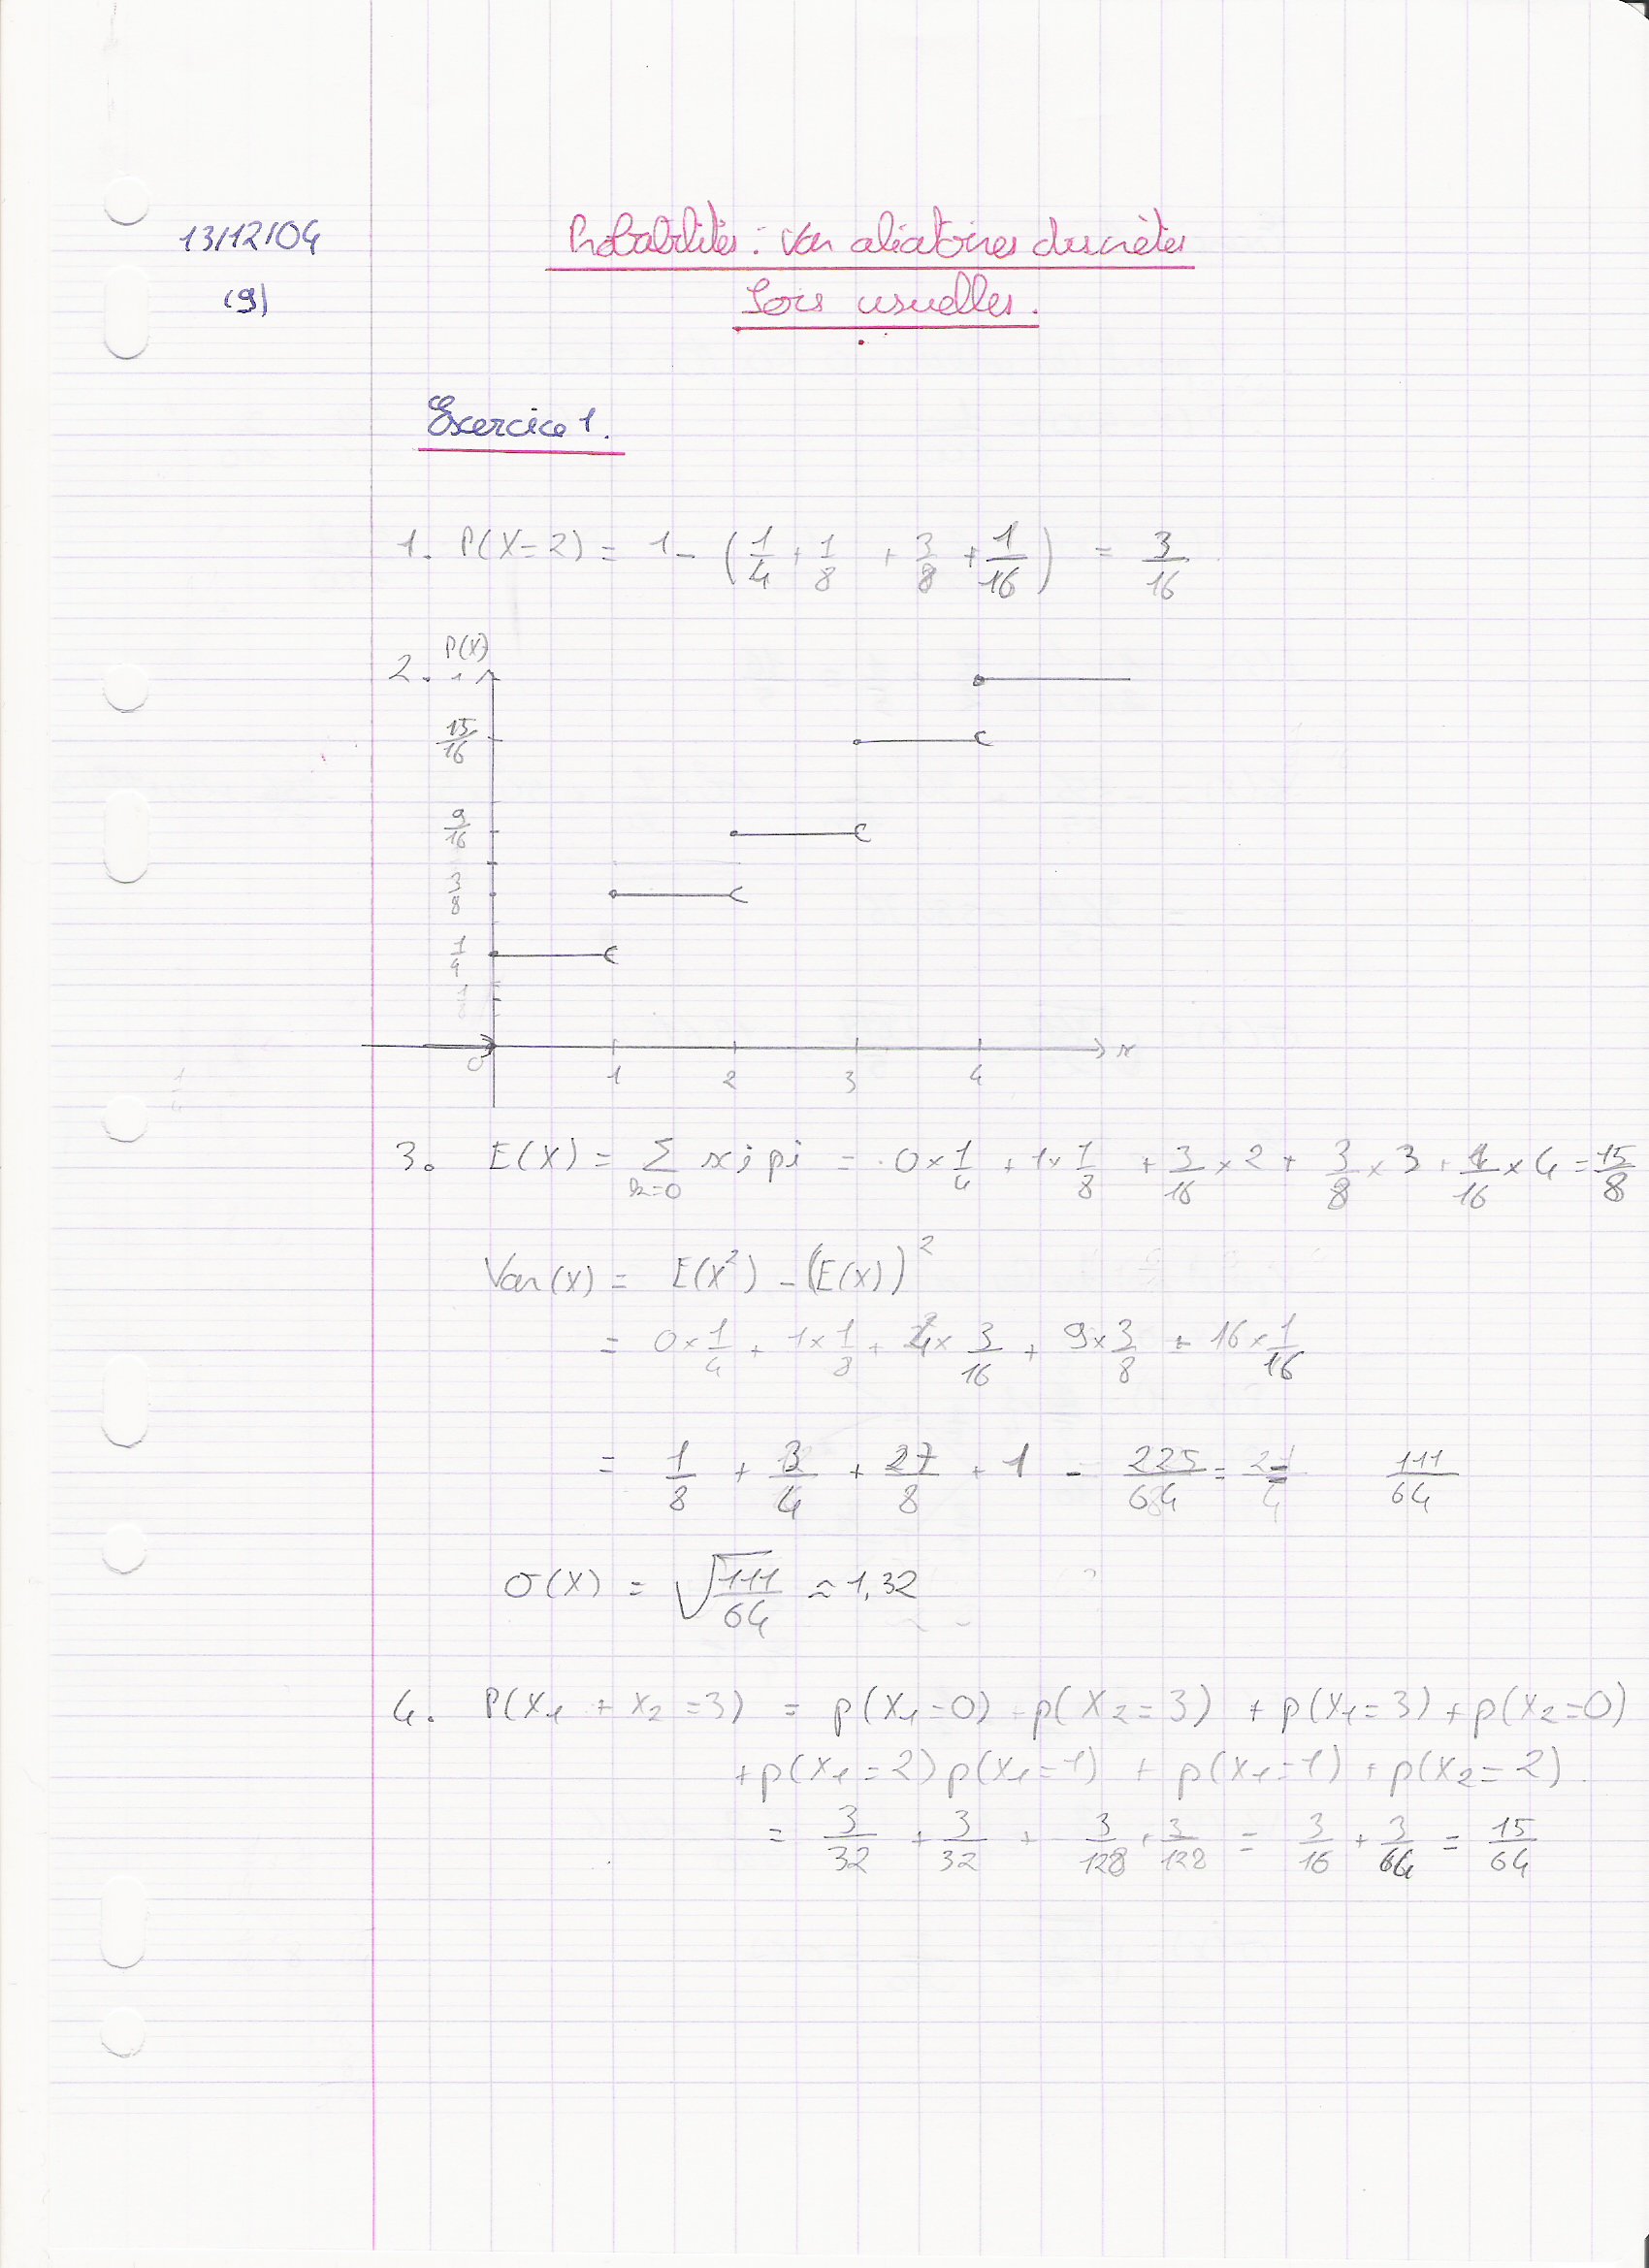 13/12/04
(9)
Probabilités : Var aléatoires discrètes
Lois usuelles.
Exercice 1.
1. P(X=2) = 1 - (1/4 + 1/8 + 3/8 + 1/16) = 3/16
2. P(X)
1
15/16
9/16
3/8
1/4
0 1 2 3 4 x
3. E(X) = Σ xi pi = 0×1/4 + 1×1/8 + 3/16×2 + 3/8×3 + 1/16×4 = 15/8
k=0
Var(X) = E(X²) - (E(X))²
= 0×1/4 + 1×1/8 + 4×3/16 + 9×3/8 + 16×1/16
= 1/8 + 3/4 + 27/8 + 1 - 225/64 = 111/64
σ(X) = √(111/64) ≈ 1,32
4. P(X1 + X2 = 3) = p(X1=0) p(X2=3) + p(X1=3) + p(X2=0)
+ p(X1=2) p(X1=1) + p(X1=1) + p(X2=2).
= 3/32 + 3/32 + 3/128 + 3/128 = 3/16 + 3/64 = 15/64